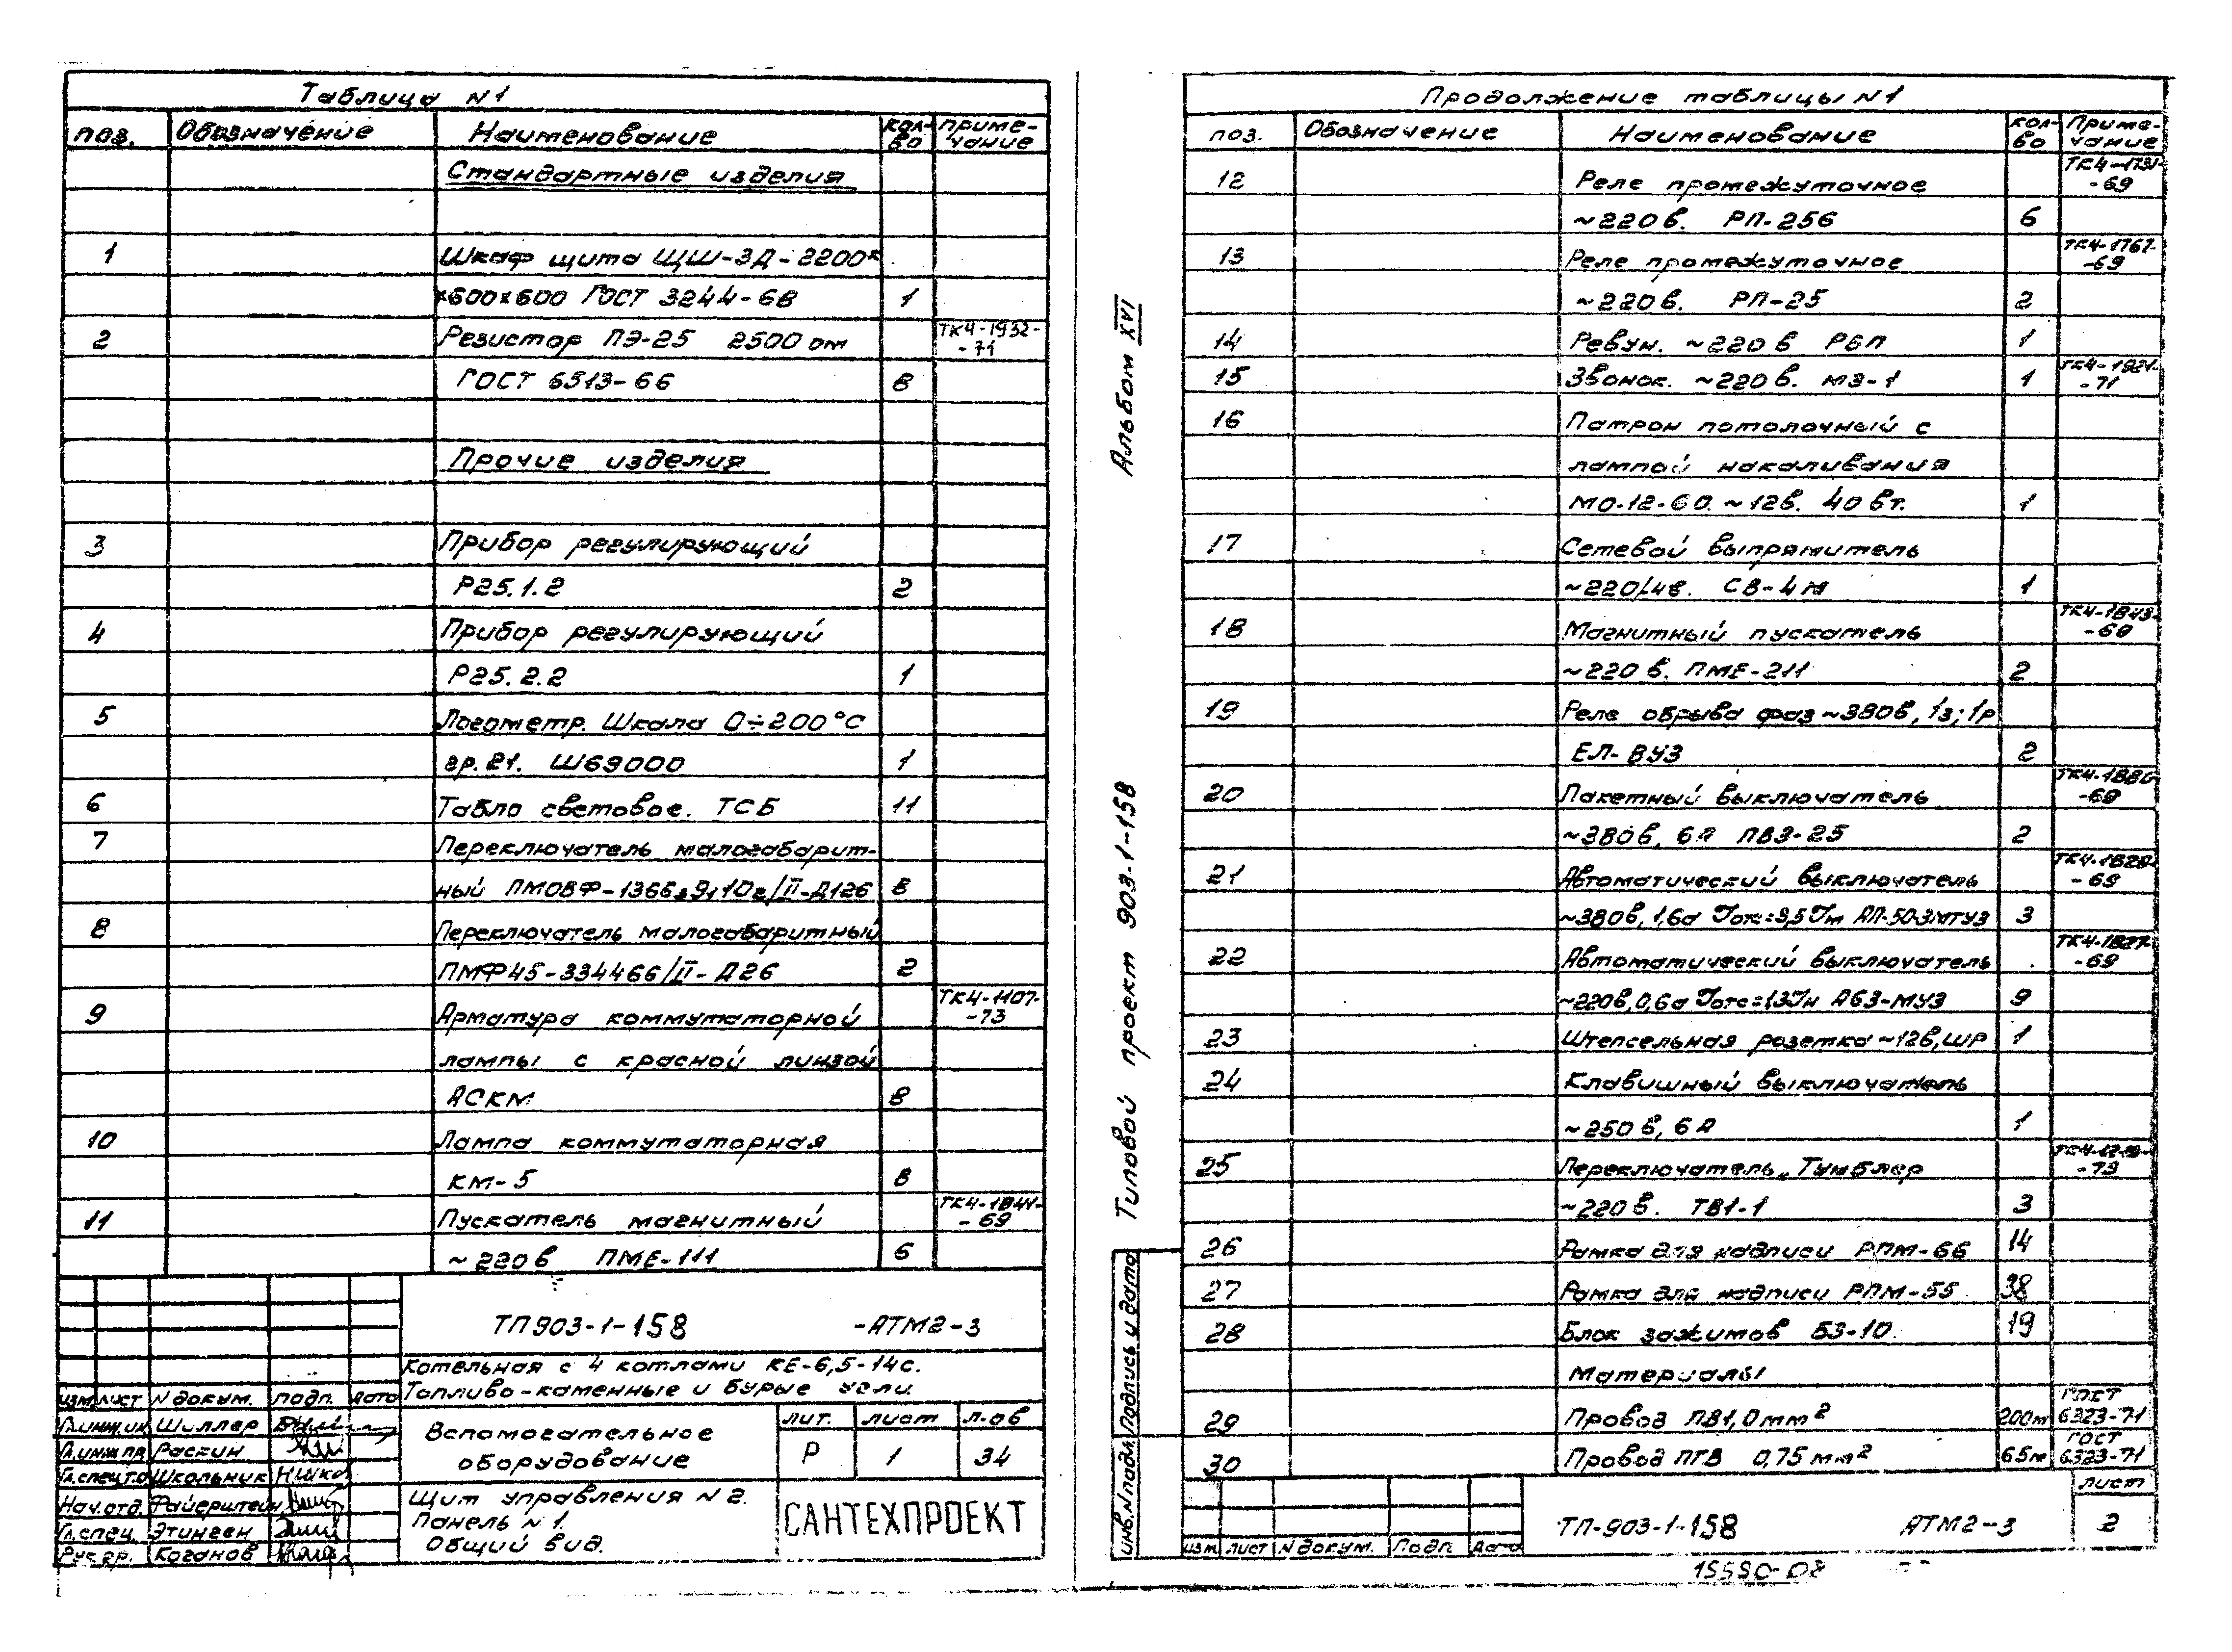 Таблица N1
поз. Обозначение Наименование кол-во Примечание
Стандартные изделия
1 Шкаф щита ЩШ-ЗД-2200×
×600×600 ГОСТ 3244-68 1
2 Резистор ПЭ-25 2500 ом ТК4-1932-71
ГОСТ 6513-66 8
Прочие изделия
3 Прибор регулирующий
Р25.1.2 2
4 Прибор регулирующий
Р25.2.2 1
5 Логометр. Шкала 0÷200°С
гр.21. Ш69000 1
6 Табло световое. ТСБ 11
7 Переключатель малогабарит-
ный 8
8 Переключатель малогабаритный
ПМФ45-334466/II-Д26 2
9 Арматура коммутаторной ТК4-1107-73
лампы с красной линзой
АСКМ 8
10 Лампа коммутаторная
КМ-5 8
11 Пускатель магнитный ТК4-1844-69
~220в ПМЕ-111 6
ТП903-1-158 -АТМ2-3
Котельная с 4 котлами КЕ-6,5-14с.
Топливо-каменные и бурые угли.
изм лист N докум. подп. дата
Гл.инж.ин Шиллер
Гл.инж.пр Раскин
Гл.спец.т.о Школьник
Нач.отд. Файерштейн
Гл.спец. Этинген
Рук.гр. Коганов
Вспомогательное
оборудование
лит. лист л-ов
Р 1 34
Щит управления N2.
Панель N1.
Общий вид.
САНТЕХПРОЕКТ
Альбом XVI
Типовой проект 903-1-158
Инв.N подл. Подпись и дата
Продолжение таблицы N1
поз. Обозначение Наименование кол-во Примечание
12 Реле промежуточное ТК4-1731-69
~220в. РП-256 6
13 Реле промежуточное ТК4-1767-69
~220в. РП-25 2
14 Ревун. ~220в РВП 1
15 Звонок. ~220в. МЗ-1 1 ТК4-1921-71
16 Патрон потолочный с
лампой накаливания
МО-12-60. ~12в. 40вт. 1
17 Сетевой выпрямитель
~220/4в. СВ-4м 1
18 Магнитный пускатель ТК4-1843-69
~220в. ПМЕ-211 2
19 Реле обрыва фаз ~380в, 1з; 1р
ЕЛ-8УЗ 2
20 Пакетный выключатель
~380в, 6А ПВ3-25 2
21 Автоматический выключатель ТК4-1828-69
~380в, 1,6а Iотс=3,5Iн АП-50-3МТУЗ 3
22 Автоматический выключатель ТК4-1827-69
~220в, 0,6а Iотс=1,3Iн А63-МУЗ 9
23 Штепсельная розетка ~12в, ШР 1
24 Клавишный выключатель
~250в, 6А 1
25 Переключатель „Тумблер
~220в. ТВ1-1 3
26 Рамка для надписи РПМ-66 14
27 Рамка для надписи РПМ-55 38
28 Блок зажимов БЗ-10 19
Материалы
29 Провод ПВ1,0мм² 200м ГОСТ 6323-71
30 Провод ПГВ 0,75мм² 65м ГОСТ 6323-71
ТП-903-1-158 АТМ2-3
лист
2
изм лист N докум. Подп. Дата
15590-08